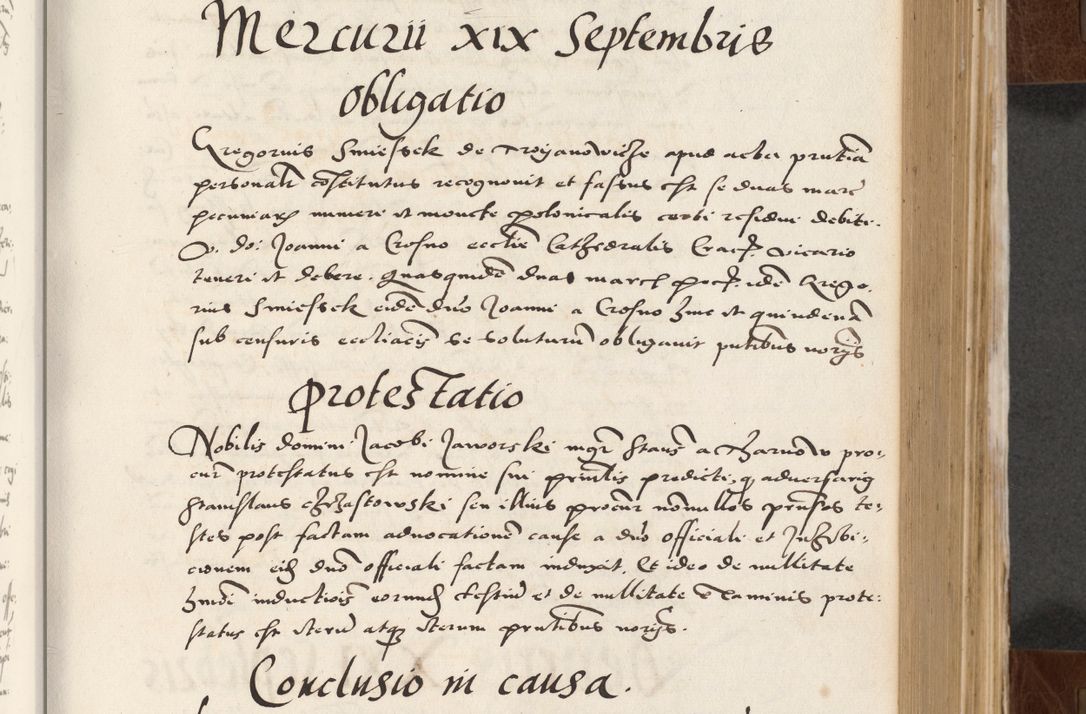 Mercurii XIX Septembris
Obligatio
Gregorius Smieſsek de Troyanowicze apud acta prntia
personalr constitutus recognovit et fassus est se duas marc
pecuniarz numeri et monete polonicalis certi residui debiti
V. do: Joanni a Crosno ecclie Cathedralis Crac. vicario
teneri et debere. Quasquide duas marc poc. ide Grego,
rius Smieſsek eide duo Joanni a Crosno hinc et quindena
sub censuris eccliacis se soluturu obligavit pntibus noriis
Protestatio
Nobilis domini Jacobi Jaworski mgr Stans a Tharnow pro-
cur protestatus est nomine sui prnlis predicti, q adversariq
Stanislaus Chrzastowski seu illius procur nonnullos prnsos te-
stes post factam advocatione cause a duo officiali et Inhibi-
cionem eid duo officiali factam induxit. Et ideo de nullitate
hmdi inductiois eorund testiu et de nullitate examinis prote-
status est iteru atq iterum prntibus noriis.
Conclusio in causa.